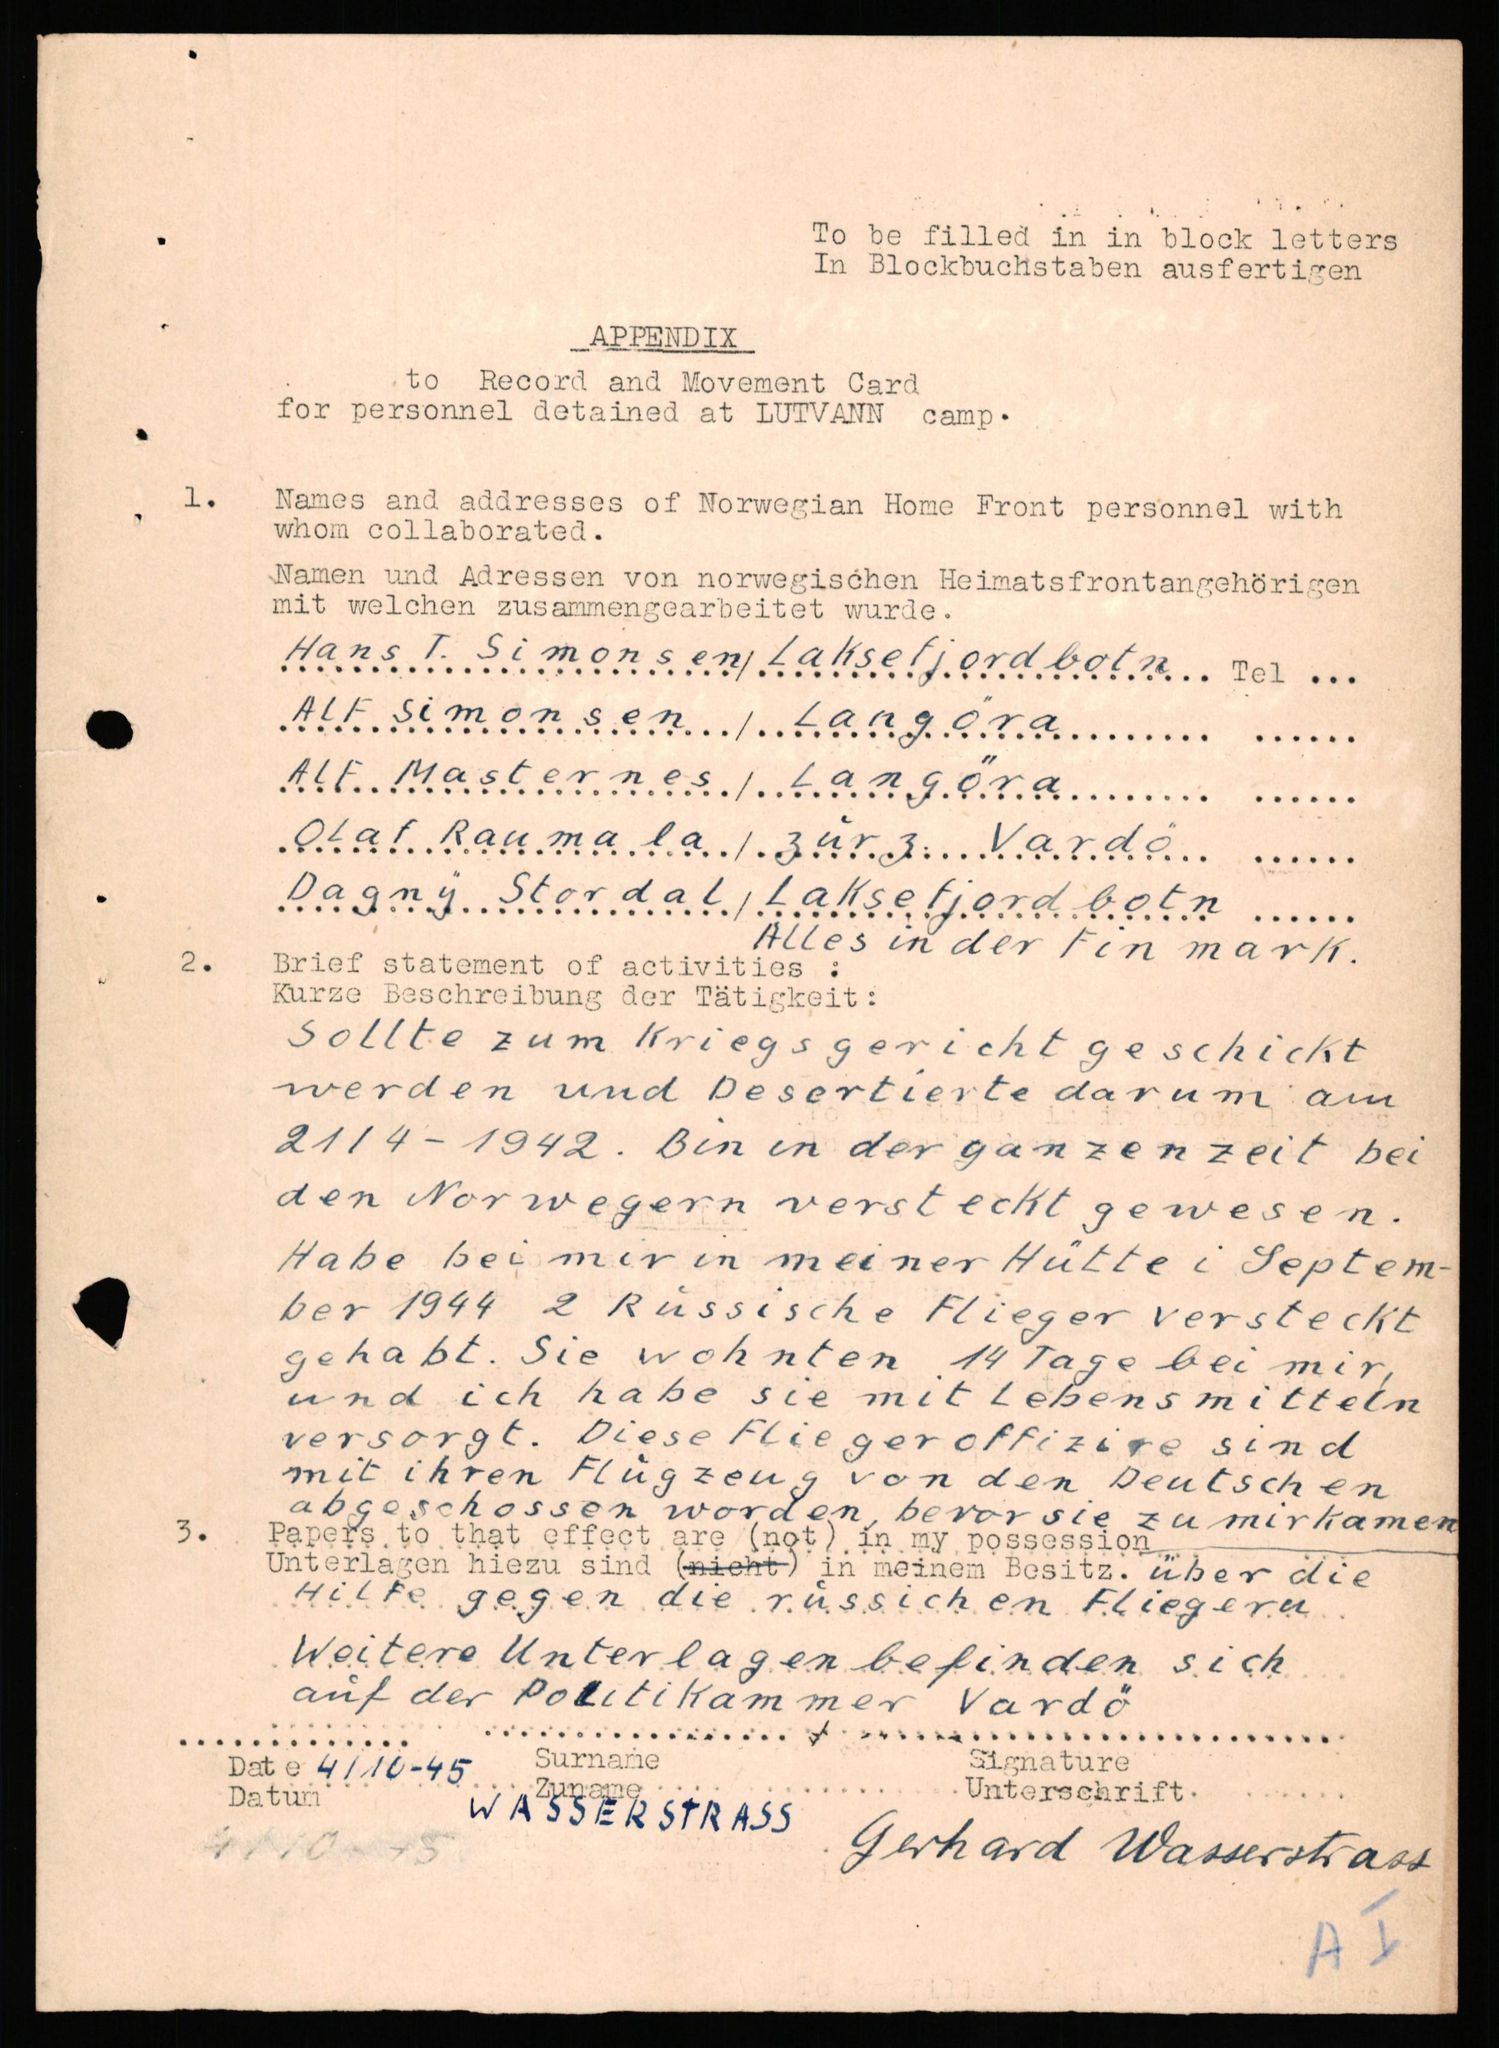 To be filled in in block letters
In Blockbuchstaben ausfertigen
APPENDIX
to Record and Movement Card
for personnel detained at LUTVANN camp.
1. Names and addresses of Norwegian Home Front personnel with
whom collaborated.
Namen und Adressen von norwegischen Heimatsfrontangehörigen
mit welchen zusammengearbeitet wurde.
Hans T. Simonsen / Laksefjordbotn Tel ...
Alf Simonsen / Langöra
Alf Masternes / Langöra
Olaf Raumala / zürz. Vardö
Dagnÿ Stordal / Laksefjordbotn
Alles in der Finmark.
2. Brief statement of activities :
Kurze Beschreibung der Tätigkeit:
Sollte zum Kriegsgericht geschickt
werden und Desertierte darum am
21/4-1942. Bin in der ganzen zeit bei
den Norwegern versteckt gewesen.
Habe bei mir in meiner Hütte i Septem-
ber 1944 2 Rüssische Flieger versteckt
gehabt. Sie wohnten 14 Tage bei mir,
und ich habe sie mit Lebensmitteln
versorgt. Diese Fliegeroffizire sind
mit ihren Flügzeug von den Deutschen
abgeschossen worden, bevor sie zu mir kamen
3. Papers to that effect are (not) in my possession
Unterlagen hiezu sind (nicht) in meinem Besitz. über die
Hilfe gegen die rüssichen Fliegern
Weitere Unterlagen befinden sich
auf der Politikammer Vardö
Date 4/10-45 Surname Signature
Datum Zuname Unterschrift
WASSERSTRASS
Gerhard Wasserstrass
4/10-45
A I